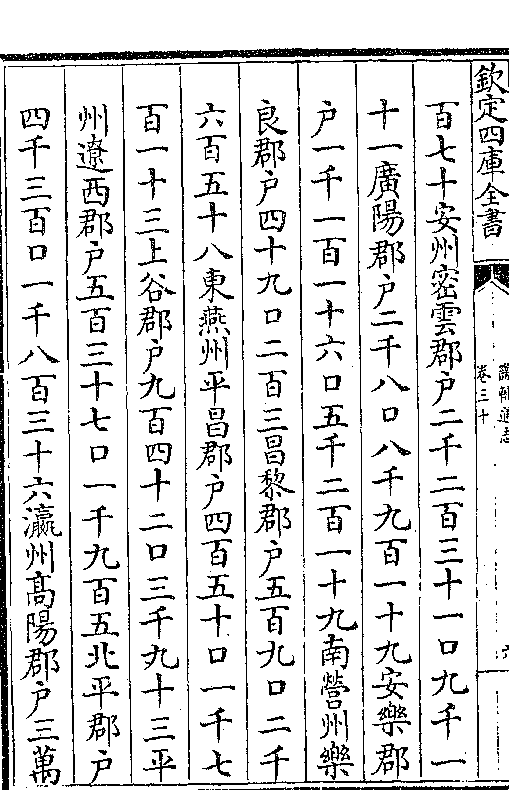 欽定四庫全書
畿輔通志
卷三十
百七十安州密雲郡户二千二百三十一口九千一
十一廣陽郡户二千八口八千九百一十九安樂郡
户一千一百一十六口五千二百一十九南營州樂
良郡户四十九口二百三昌黎郡户五百九口二千
六百五十八東燕州平昌郡户四百五十口一千七
百一十三上谷郡户九百四十二口三千九十三平
州遼西郡户五百三十七口一千九百五北平郡户
四千三百口一千八百三十六瀛州髙陽郡户三萬